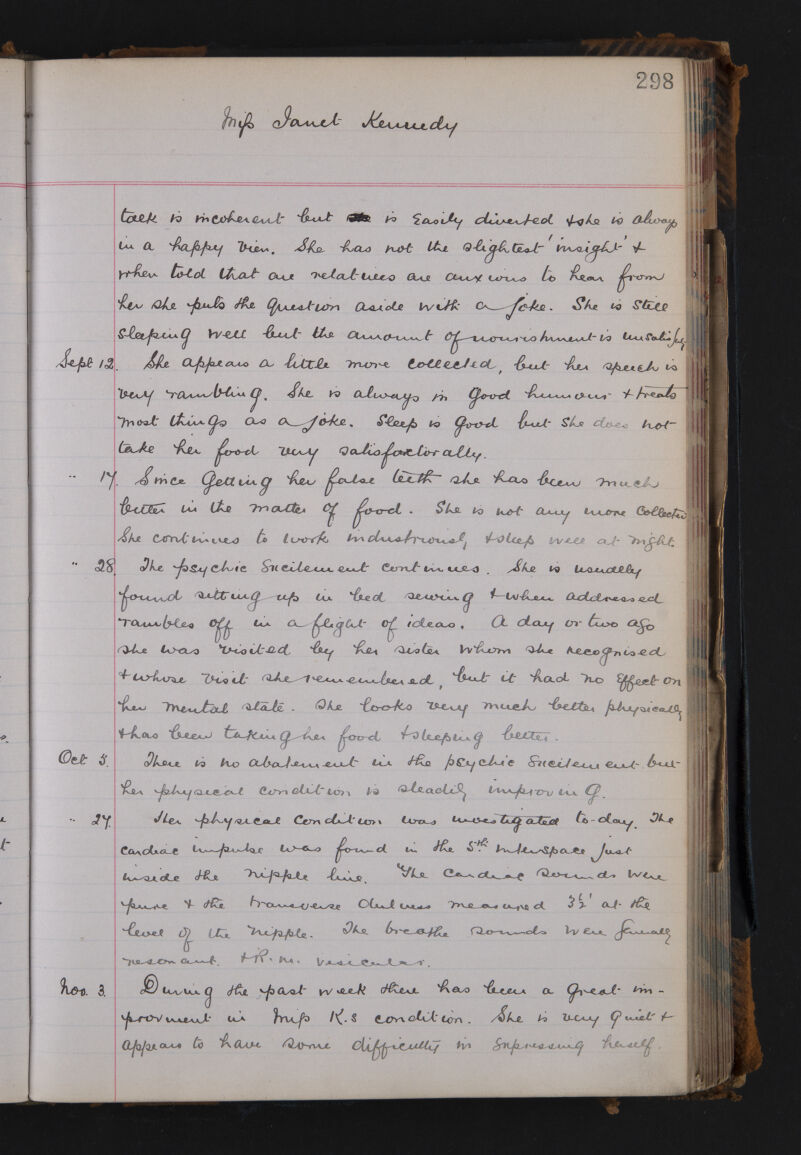 298
Miss Janet Kennedy
talk is incoherent but is easily diverted & she is always
in a happy vien. She has not the slightest 'insight' &
when told that are relatives are anxious to hear from
her she puts the question aside with a joke. She is still
sleeping well but the amount of nourishment is unsatisfy
Sept 12. She appears a little more collected, but her speech is
very rambling. She is always in good humour & treats
most things as a joke. Sleep is good but she does not
take her food very satisfactorally.
" 17. Since getting her false teeth she has been much
better in the matter of food. She is not any more collected
She continues to work industriously & sleeps well at night.
" 28 The psychic excitement continues. She is usually
found sitting up in bed sewing & when addressed
rambles off in a flight of ideas. A day or two ago
she was visited by her sister whom she recognised
& whose visit she remembered, but it had no effect on
her mental state. She looks very much better physically
& has been taking her food & sleeping better.
Oct 5. There is no abatement in the psychic excitement but
her physical condition is steadily improving.
" 27. Her physical condition was investigated to-day. The
cardiac impulse was found in the 5th interspace just
inside the nipple line. The cardiac sounds were
pure & the transverse dulness measured 3½' at the
level of the nipple. The breathe sounds were generally
resonant. & R. m. vesicular.
Nov. 3. During the past week there has been a great im-
provment in Miss K.s condition. She is very quiet &
appears to have some difficulty in expressing herself.